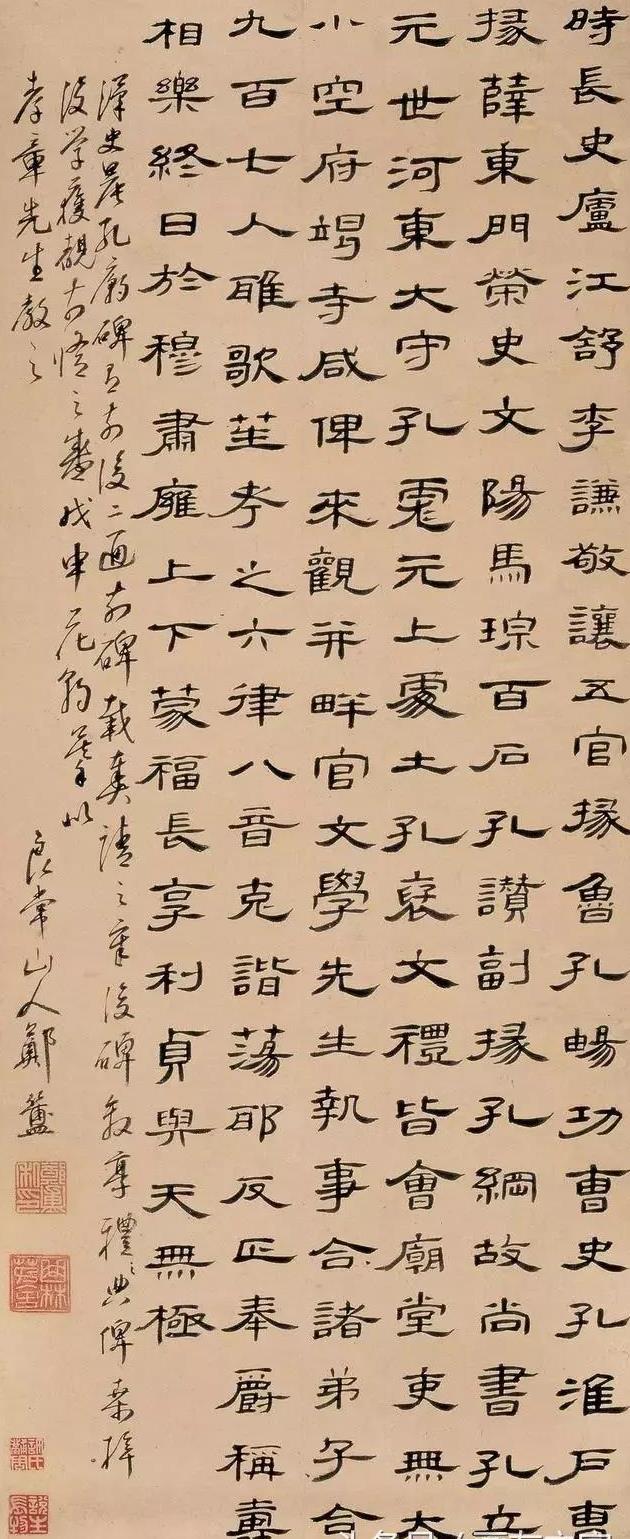 時長史廬江舒李謙敬讓五官掾魯孔暢功曹史孔淮戶曹
掾薛東門榮史文陽馬琮百石孔讃副掾孔綱故尚書孔立
元世河東大守孔彪元上處土孔襃文禮皆會廟堂吏無大
小空府竭寺咸俾來觀并畔官文學先生執事合諸弟子合
九百七人雅歌笙考之六律八音克諧蕩耶反正奉爵稱壽
相樂終日於穆肅雍上下蒙福長享利貞與天無極
漢史晨孔廟碑有前後二通前碑載奏請之章後碑敘享禮之典俾桑梓
後学獲覩之盛戊申花朝以
孝章先生教之
良常山人鄭簠